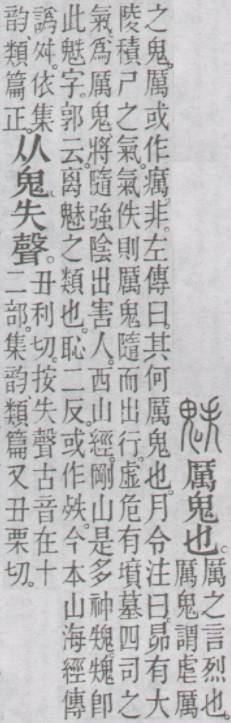 䰡 厲鬼也。
厲之言烈也。
厲鬼謂虐厲
之鬼。厲或作癘。非。左傳曰。其何厲鬼也。月令注曰。昴有大
陵積尸之氣。氣佚則厲鬼隨而出行。虛危有墳墓四司之
氣。爲厲鬼將隨強陰出害人。西山經。剛山是多神卽
此䰡字。郭云。离魅之類也。恥二反。或作今本山海經傳
譌舛。依集
韵、類篇正。
从鬼失聲。
丑利切。按失聲古音在十
二部。集韵、類篇又丑栗切。